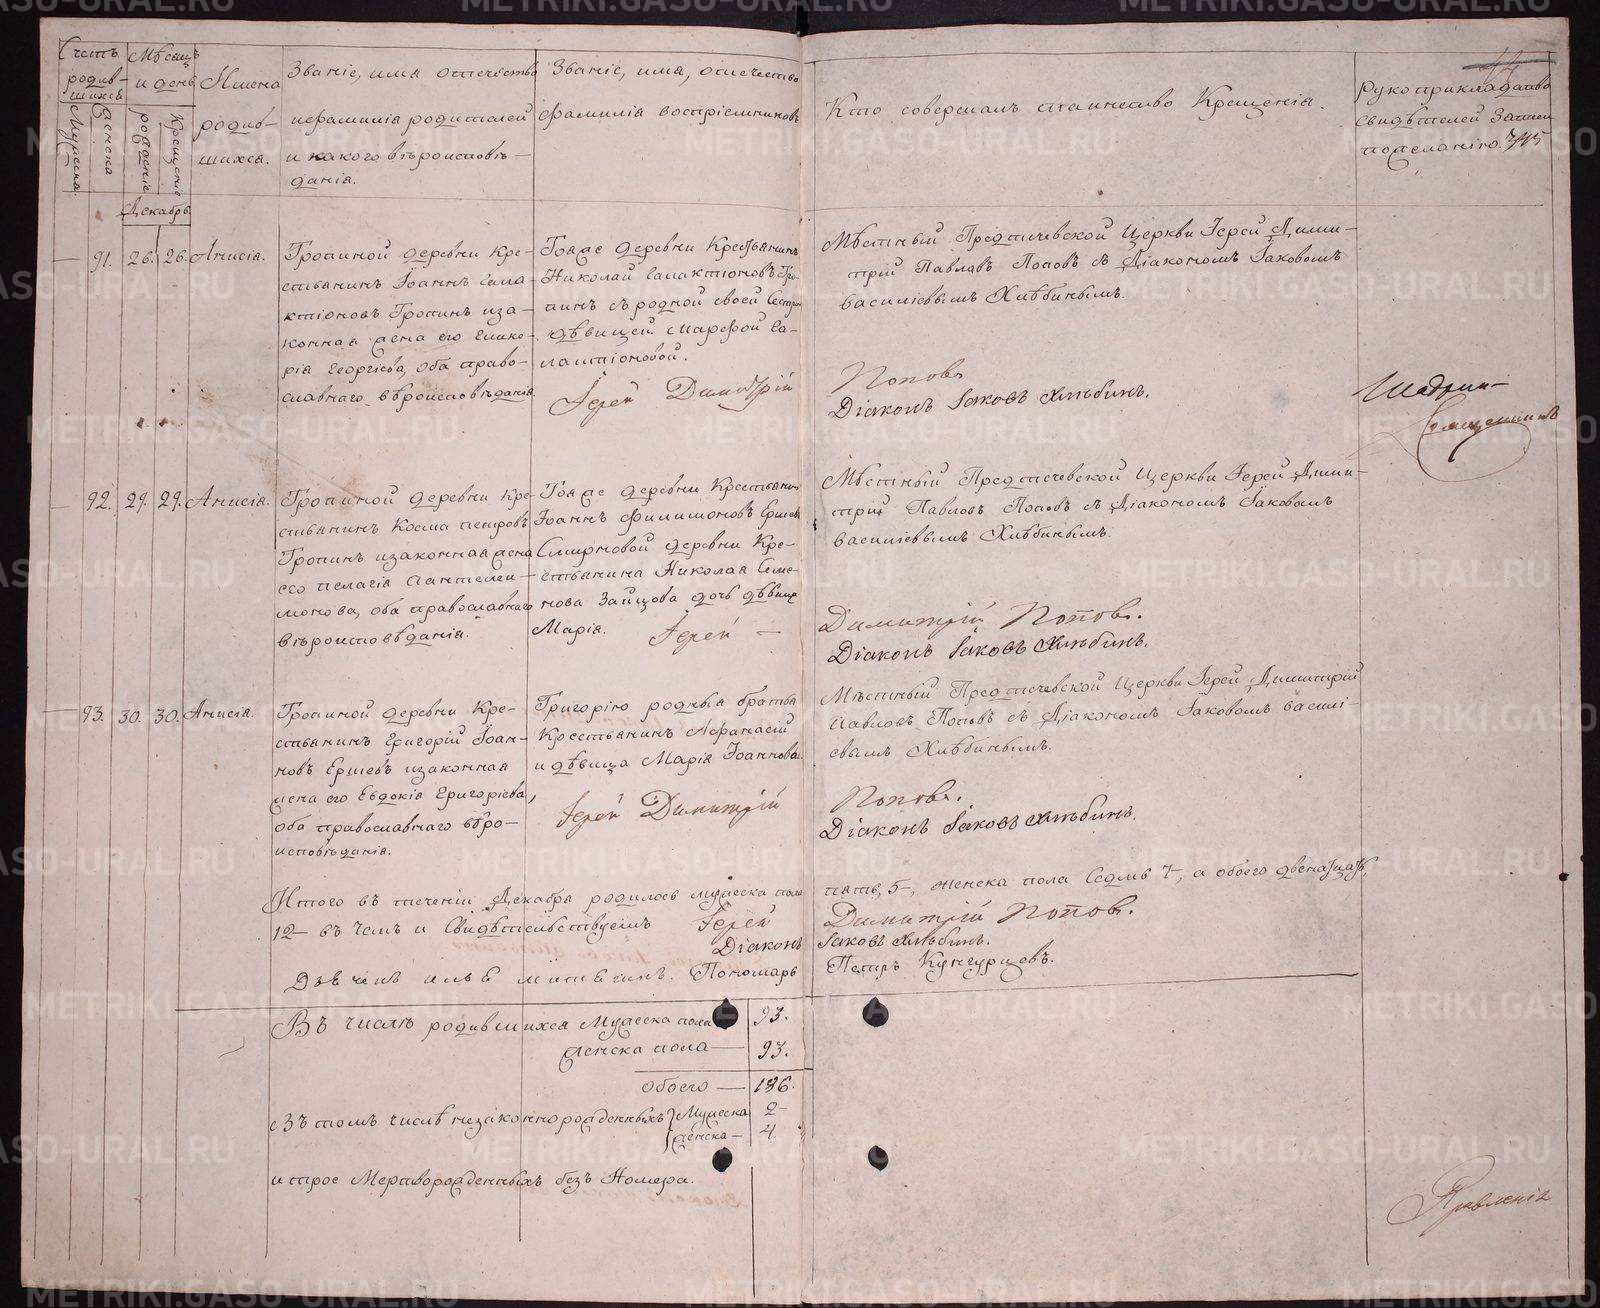 Счетъ родив-шихся
Мужеска.
Женска
Мѣсяцъ и день
рожденіе
Крещеніе
Имена
родив-
шихся.
Званіе, имя отечество
и фамилія родителей
и какого вѣроисповѣ-
данія.
Званіе, имя, отечество
фамилія воспріемниковъ
Кто совершалъ таинство Крещенія.
Рукоприкладство
свидѣтелей записи
по желанію
Декабрь
91. 26. 26. Анисія.
Тропиной деревни Кре-
стьянинъ Іоаннъ Гала-
ктіоновъ Тропинъ и за-
конная жена его Глике-
рія Георгіева, оба право-
славнаго вѣроисповѣданія.
Тояже деревни Крестьянинъ
Николай Галактіоновъ Тро-
пинъ съ родной своей сестрой
дѣвицей Марѳой Га-
лактіоновой.
Іерей Димитрій
Мѣстный Предтечевской Церкви Іерей Дими-
трій Павловъ Поповъ съ Діакономъ Іаковомъ
Василіевымъ Хлѣбинымъ.
Поповъ
Діаконъ Іаковъ Хлѣбинъ.
92. 29. 29. Анисія.
Тропиной деревни Кре-
стьянинъ Косма Петровъ
Тропинъ и законная жена
его Пелагія Пантелеи-
монова, оба православнаго
вѣроисповѣданія.
Тояже деревни Крестьянинъ
Іоаннъ Филимоновъ Ершовъ
Смирновой деревни Кре-
стьянина Николая Семе-
нова Зайцова дочь дѣвица
Марія.
Іерей —
Мѣстный Предтечевской Церкви Іерей Дими-
трій Павловъ Поповъ съ Діакономъ Іаковомъ
Василіевымъ Хлѣбинымъ.
Димитрій Поповъ.
Діаконъ Іаковъ Хлѣбинъ.
93. 30. 30. Анисія.
Тропиной деревни Кре-
стьянинъ Григорій Іоан-
новъ Ершевъ и законная
жена его Евдокія Григоріева,
оба православнаго вѣро-
исповѣданія.
Григорію родныя братья
Крестьянинъ Аѳанасій
и дѣвица Марія Іоаннова.
Іерей Димитрій
Мѣстный Предтечевской Церкви Іерей Димитрій
Павловъ Поповъ съ Діакономъ Іаковомъ Василі-
евымъ Хлѣбинымъ.
Поповъ.
Діаконъ Іаковъ Хлѣбинъ.
Итого въ теченіи Декабря родилось мужеска пола пять, 5-, женска пола Седмь 7-, а обоего двенадцать,
12- въ чемъ и Свидѣтельствуемъ Іерей Димитрій Поповъ.
Діаконъ Іаковъ Хлѣбинъ.
Пономарь Петръ Кунгурцовъ.
Въ числѣ родившихся Мужеска пола 93.
Женска пола — 93.
обоего — 186.
Въ томъ числѣ незаконнорожденныхъ Мужеска 2-
Женска — 4.
и трое Мертворожденныхъ безъ Номера.
Правленія
METRIKI.GASO-URAL.RU